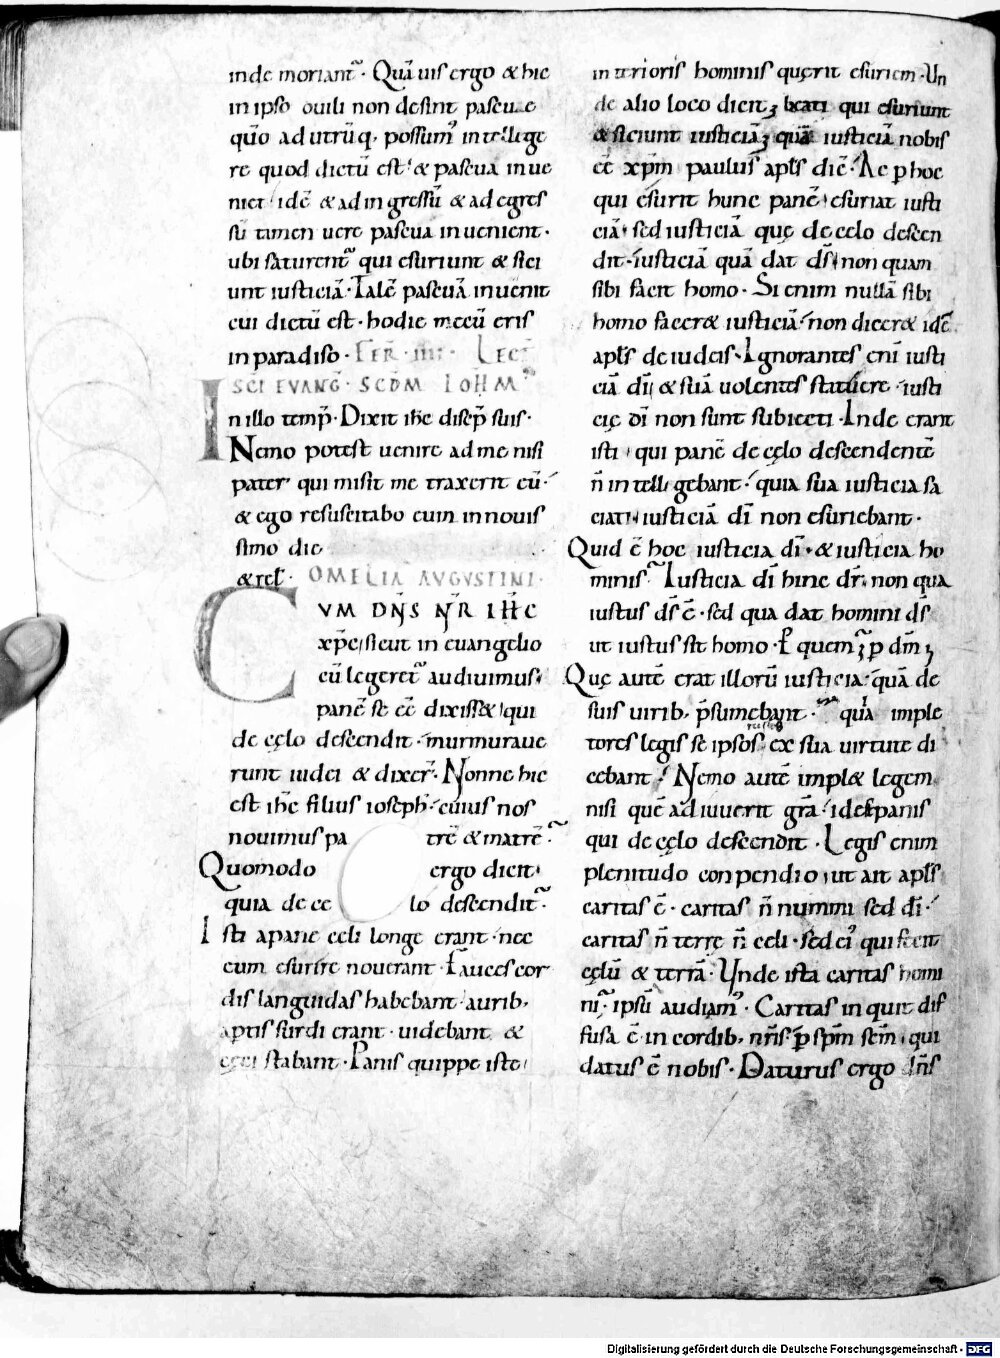 inde moriant᷑· Quāuis ergo & hic
in ipso ouili non desint pascue
quō ad utrūq; possum᷒ intellege
re quod dictū est· & pascua inue
niet· idē & ad ingressū & ad egres
sū tamen uere pascua inuenient·
ubi saturent᷑ qui esuriunt & siti
unt iusticiā· Talē pascuā inuenit
cui dictū est· hodie mecū eris
in paradiso· FER· IIII· LEC̄
SC̄I EVANG· SCDM IOHM
In illo temp̄· Dixit ih̄c discip̄ suis·
Nemo potest uenire ad me nisi
pater qui misit me traxerit eū·
& ego resuscitabo eum in nouis
simo die
& rel̄· OMELIA AVGVSTINI·
CVM DN̄S N̄R IH̄C
xp̄c sicut in euangelio
cū legeret᷑ audiuimus·
panē se eē dixisset qui
de cęlo descendit· murmuraue
runt iudei & dixer̄· Nonne hic
est ih̄c filius ioseph· cuius nos
nouimus pa trē & matrē·
Quomodo ergo dicit·
quia de ce lo descendit·
Isti a pane celi longe erant· nec
eum esurire nouerant· Fauces cor
dis languidas habebant· aurib;
aptis surdi erant· uidebant &
ceci stabant· Panis quippe iste
interioris hominis querit esuriem· Un
de alio loco dicit; beati qui esuriunt
& siciunt iusticiā; quā iusticiā nobis
eē xp̄m paulus apl̄s dic̄· Ac p hoc
qui esurit hunc panē· esuriat iusti
ciā· sed iusticiā quę de celo descen
dit· iusticiā quā dat ds̄· non quam
sibi facit homo· Si enim nullā sibi
homo facer& iusticiā· non dicer& idē
apl̄s de iudeis· Ignorantes eni iusti
ciā dī & suā uolentes statuere· iusti
cię dī non sunt subiecti· Inde erant
isti· qui panē de cęlo descendentē
n̄ intelligebant· quia sua iusticia sa
ciati· iusticiā dī non esuriebant·
Quid ē hoc iusticia dī· & iusticia ho
minis· Iusticia dī hinc dr̄· non qua
iustus ds̄ ē· sed qua dat homini ds̄
ut iustus sit homo· P quem; p dm̄;
Quę autē erat illorū iusticia· quā de
suis uirib; p̄sumebant· quā imple
tores legis se ipsos ex sua uirtute di
cebant· Nemo autē impl& legem
nisi quē adiuuerit gr̄a· id est panis
qui de cęlo descendit· Legis enim
plenitudo conpendio· ut ait apl̄s·
caritas ē· caritas n̄ nummi sed dī·
caritas n̄ terrę n̄ celi· sed ei᷒ qui fecit
cęlū & terrā· Unde ista caritas homi
ni· ipsū audiam᷒· Caritas inquit dif
fusa ē in cordib; nr̄is· p sp̄m sc̄m· qui
datus ē nobis· Daturus ergo dn̄s
Digitalisierung gefördert durch die Deutsche Forschungsgemeinschaft - DFG